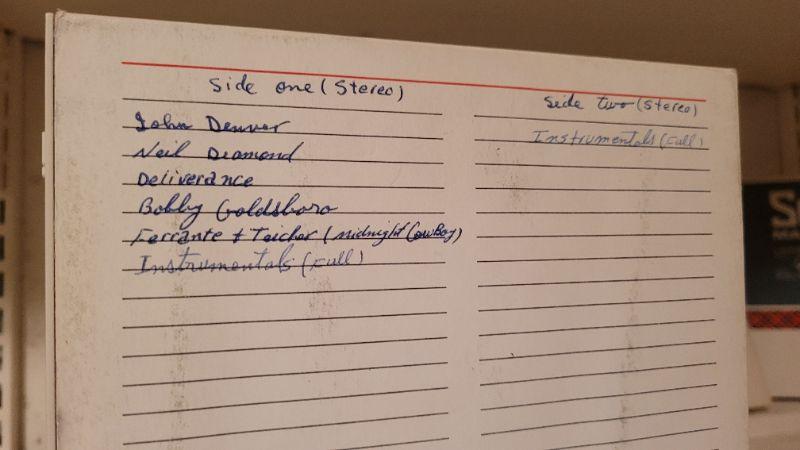 Side one (Stereo)
John Denver
Neil Diamond
Deliverance
Bobby Goldsboro
Ferrante + Teicher (Midnight CowBoy)
Instrumentals (Full)
Side two (Stereo)
Instrumentals (Full)
S